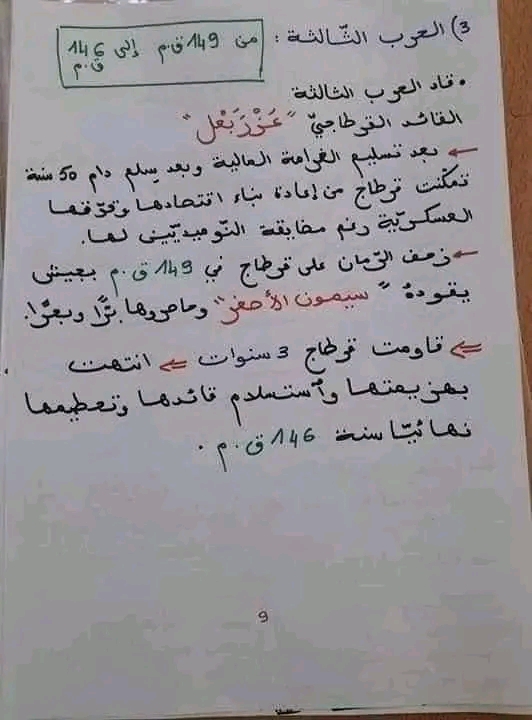 3) الحرب الثّالثة : من 149 ق.م إلى 146 ق.م
• قاد الحرب الثالثة
القائد القرطاجيّ "عَزْرَبَعْل"
← بعد تسليم الغرامة المالية وبعد سلم دام 50 سنة
تمكّنت قرطاج من إعادة بناء اقتصادها وقوّتها
العسكريّة رغم مضايقة النّوميديّين لها.
← زحف الرّومان على قرطاج في 149 ق.م بجيش
يقوده "سيبيون الأصغر" وحاصروها برًّا وبحرًا.
⇐ قاومت قرطاج 3 سنوات ⇐ انتهت
بهزيمتها واستسلام قائدها وتحطيمها
نهائيّا سنة 146 ق.م.
9